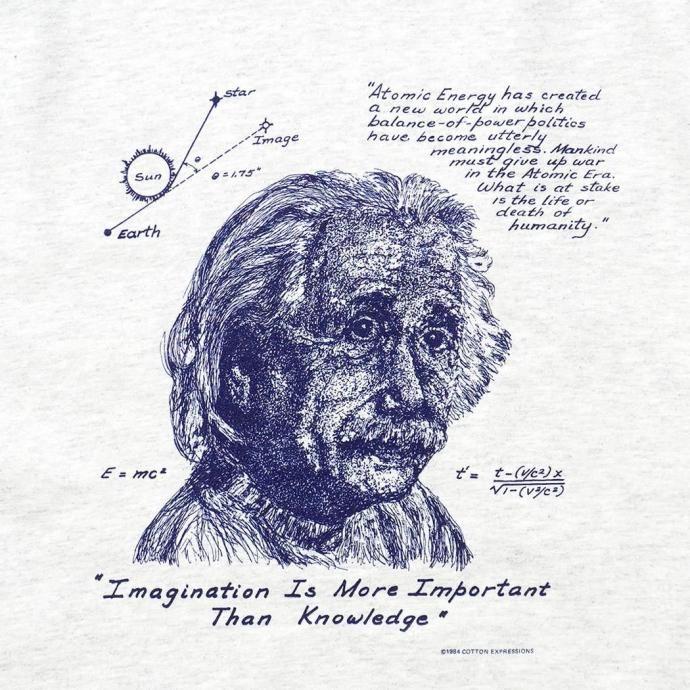 star
Image
Sun
θ
θ = 1.75"
Earth
"Atomic Energy has created
a new world in which
balance-of-power politics
have become utterly
meaningless. Mankind
must give up war
in the Atomic Era.
What is at stake
is the life or
death of
humanity."
E = mc²
t' = t-(v/c²)x
√1-(v²/c²)
"Imagination Is More Important
Than Knowledge"
©1984 COTTON EXPRESSIONS